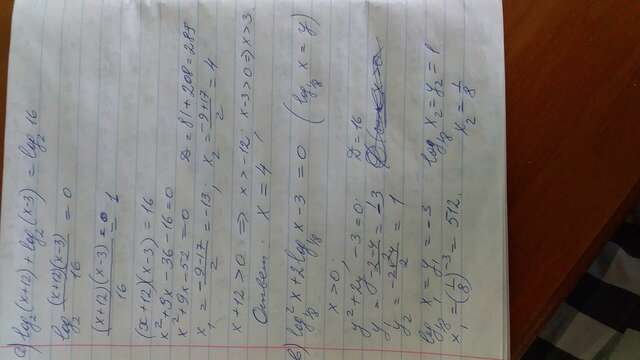 а) log₂(x+12) + log₂(x-3) = log₂16
log₂ (x+12)(x-3)/16 = 0
(x+12)(x-3)/16 = 1
(x+12)(x-3) = 16
x² + 9x - 36 - 16 = 0
x² + 9x - 52 = 0 D = 81 + 208 = 289
x₁ = (-9-17)/2 = -13; x₂ = (-9+17)/2 = 4
x + 12 > 0 ⇒ x > -12; x - 3 > 0 ⇒ x > 3
Ответ: x = 4;
в) log²_{1/8} x + 2 log_{1/8} x - 3 = 0 (log_{1/8} x = y)
x > 0;
y² + 2y - 3 = 0; D = 16
y₁ = (-2-4)/2 = -3
y₂ = (-2+4)/2 = 1
log_{1/8} x₁ = y₁ = -3 log_{1/8} x₂ = y₂ = 1
x₁ = (1/8)⁻³ = 512; x₂ = 1/8